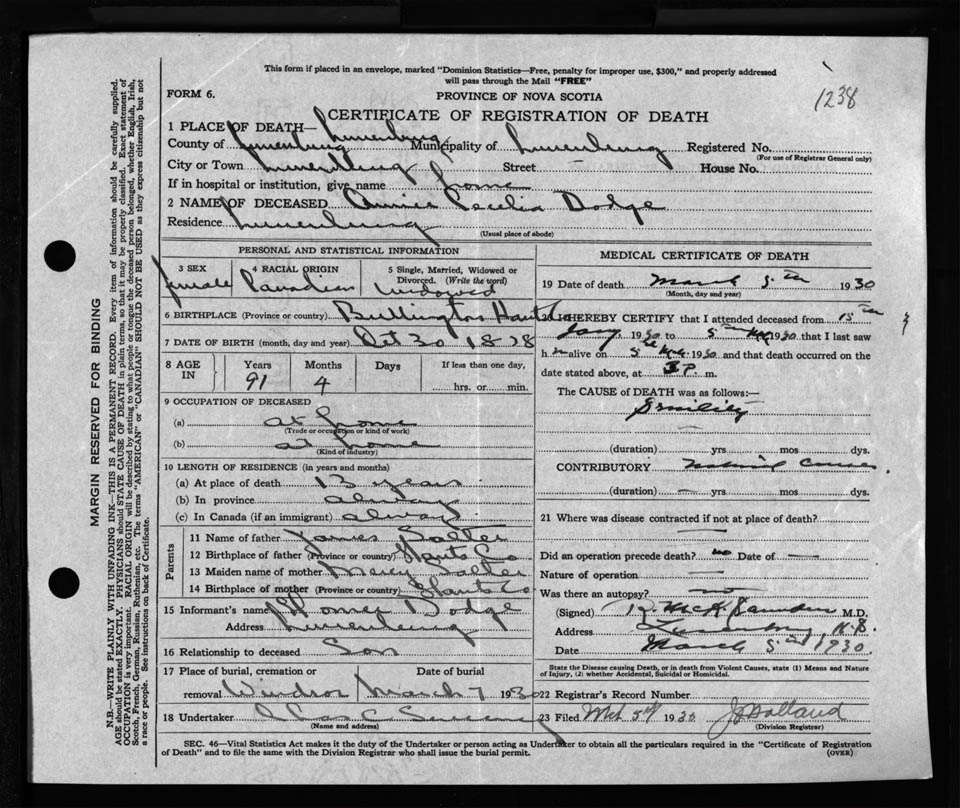 This form if placed in an envelope, marked "Dominion Statistics—Free, penalty for improper use, $300," and properly addressed
will pass through the Mail "FREE"
FORM 6.
PROVINCE OF NOVA SCOTIA
1238
CERTIFICATE OF REGISTRATION OF DEATH
1 PLACE OF DEATH— Lunenburg
County of Lunenburg Municipality of Lunenburg Registered No.
(For use of Registrar General only)
City or Town Lunenburg Street — House No.
If in hospital or institution, give name home
2 NAME OF DECEASED Annie Cecelia Dodge
Residence Lunenburg
(Usual place of abode)
PERSONAL AND STATISTICAL INFORMATION
3 SEX
female
4 RACIAL ORIGIN
Canadian
5 Single, Married, Widowed or
Divorced. (Write the word)
Widowed
6 BIRTHPLACE (Province or country) Hants
7 DATE OF BIRTH (month, day and year) Oct 30 1838
8 AGE
IN
Years
91
Months
4
Days
If less than one day,
hrs. or min.
9 OCCUPATION OF DECEASED
(a) at home
(Trade or occupation or kind of work)
(b) at home
(Kind of industry)
10 LENGTH OF RESIDENCE (in years and months)
(a) At place of death 13 years
(b) In province always
(c) In Canada (if an immigrant) always
Parents
11 Name of father James Salter
12 Birthplace of father (Province or country) Hants Co
13 Maiden name of mother Mercy Salter
14 Birthplace of mother (Province or country) Hants Co
15 Informant's name Homer Dodge
Address Lunenburg
16 Relationship to deceased Son
17 Place of burial, cremation or
removal Windsor
Date of burial
March 7 1930
18 Undertaker Chas C
(Name and address)
MEDICAL CERTIFICATE OF DEATH
19 Date of death March 5th 1930
(Month, day and year)
I HEREBY CERTIFY that I attended deceased from 15th
Jany 1930 to 5th Mch 1930 that I last saw
h alive on 5th Mch 1930 and that death occurred on the
date stated above, at 3 P. m.
The CAUSE of DEATH was as follows:—
Senility
(duration) yrs mos dys.
CONTRIBUTORY Natural Causes
(duration) — yrs mos dys.
21 Where was disease contracted if not at place of death?
—
Did an operation precede death? no Date of —
Nature of operation —
Was there an autopsy? no
(Signed) R McK Saunders M.D.
Address Lunenburg N.S.
Date March 5th 1930.
State the Disease causing Death, or in death from Violent Causes, state (1) Means and Nature
of Injury, (2) whether Accidental, Suicidal or Homicidal.
22 Registrar's Record Number
23 Filed Mch 5th 1930 J Holland
(Division Registrar)
SEC. 46—Vital Statistics Act makes it the duty of the Undertaker or person acting as Undertaker to obtain all the particulars required in the "Certificate of Registration
of Death" and to file the same with the Division Registrar who shall issue the burial permit.
(OVER)
MARGIN RESERVED FOR BINDING
N.B.—WRITE PLAINLY WITH UNFADING INK—THIS IS A PERMANENT RECORD. Every item of information should be carefully supplied.
AGE should be stated EXACTLY. PHYSICIANS should STATE CAUSE OF DEATH in plain terms, so that it may be properly classified. Exact statement of
OCCUPATION is very important. RACIAL ORIGIN will be described by stating to what people or tongue the deceased person belonged, whether English, Irish,
Scotch, French, German, Russian, Ruthenian, etc. The terms "AMERICAN" or "CANADIAN" SHOULD NOT BE USED as they express citizenship but not
a race or people. See instructions on back of Certificate.